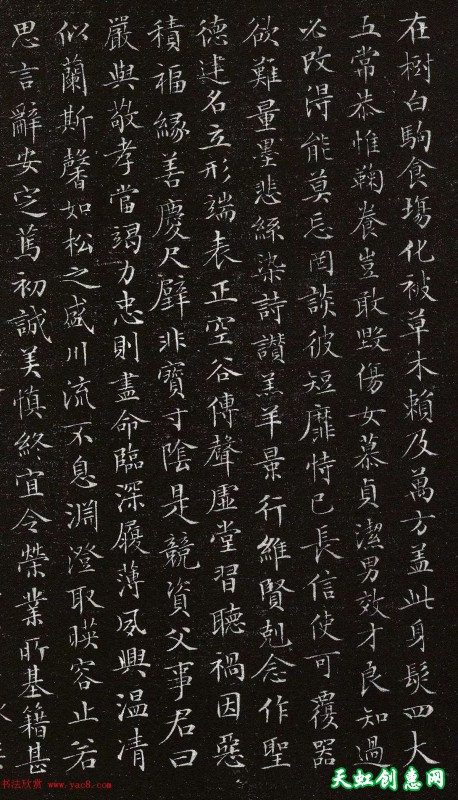 在樹白駒食場化被草木賴及萬方盖此身髮四大
五常恭惟鞠養豈敢毀傷女慕貞潔男效才良知過
必改得能莫忘罔談彼短靡恃己長信使可覆器
欲難量墨悲絲染詩讃羔羊景行維賢剋念作聖
德建名立形端表正空谷傳聲虛堂習聽禍因惡
積福緣善慶尺璧非寶寸陰是競資父事君曰
嚴與敬孝當竭力忠則盡命臨深履薄夙興温凊
似蘭斯馨如松之盛川流不息淵澄取暎容止若
思言辭安定篤初誠美慎終宜令榮業所基籍甚
书法欣赏 www.yac8.com
天虹创惠网